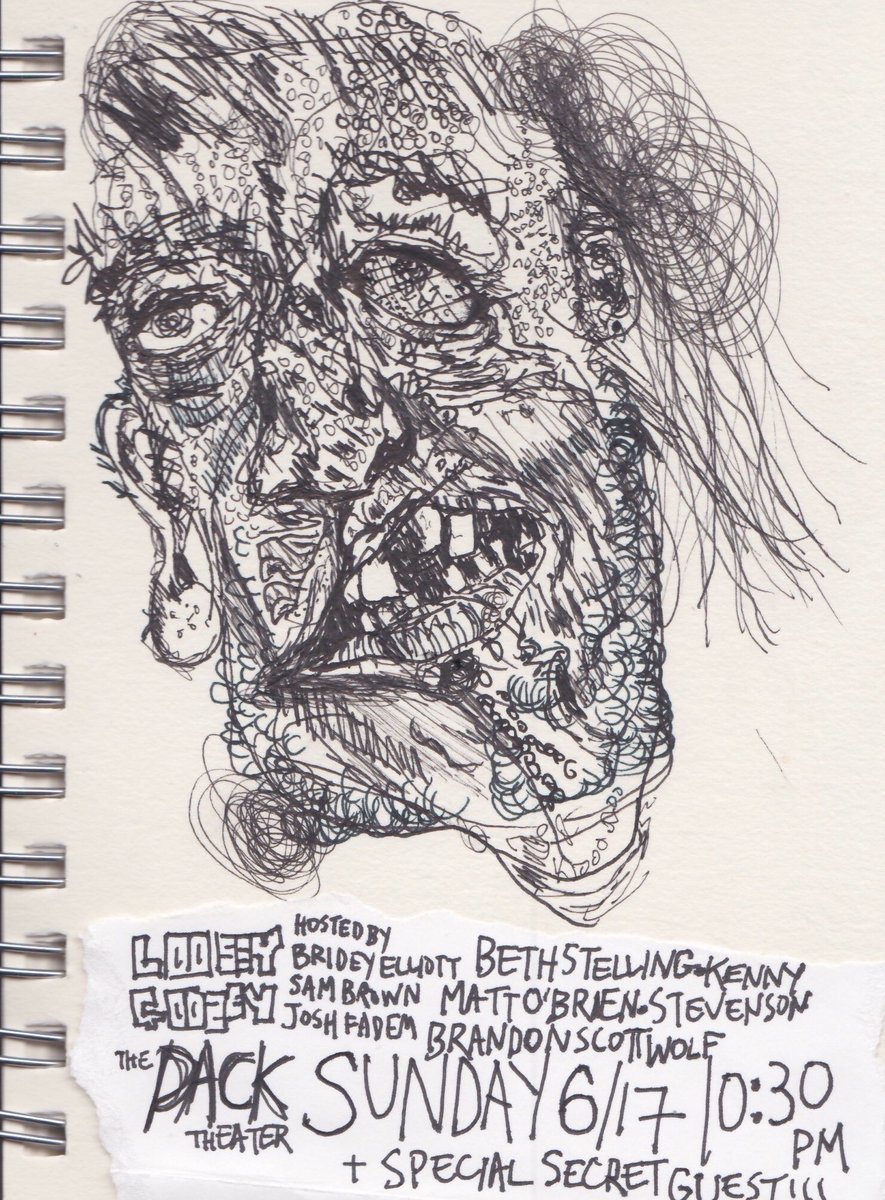 LOOEEY
GOOEEY
HOSTED BY
BRIDEY ELLIOTT
SAM BROWN
JOSH FADEM
BETH STELLING • KENNY
MATT O'BRIEN • STEVENSON
BRANDON SCOTT WOLF
THE PACK
THEATER
SUNDAY 6/17 10:30
PM
+ SPECIAL SECRET GUEST!!!